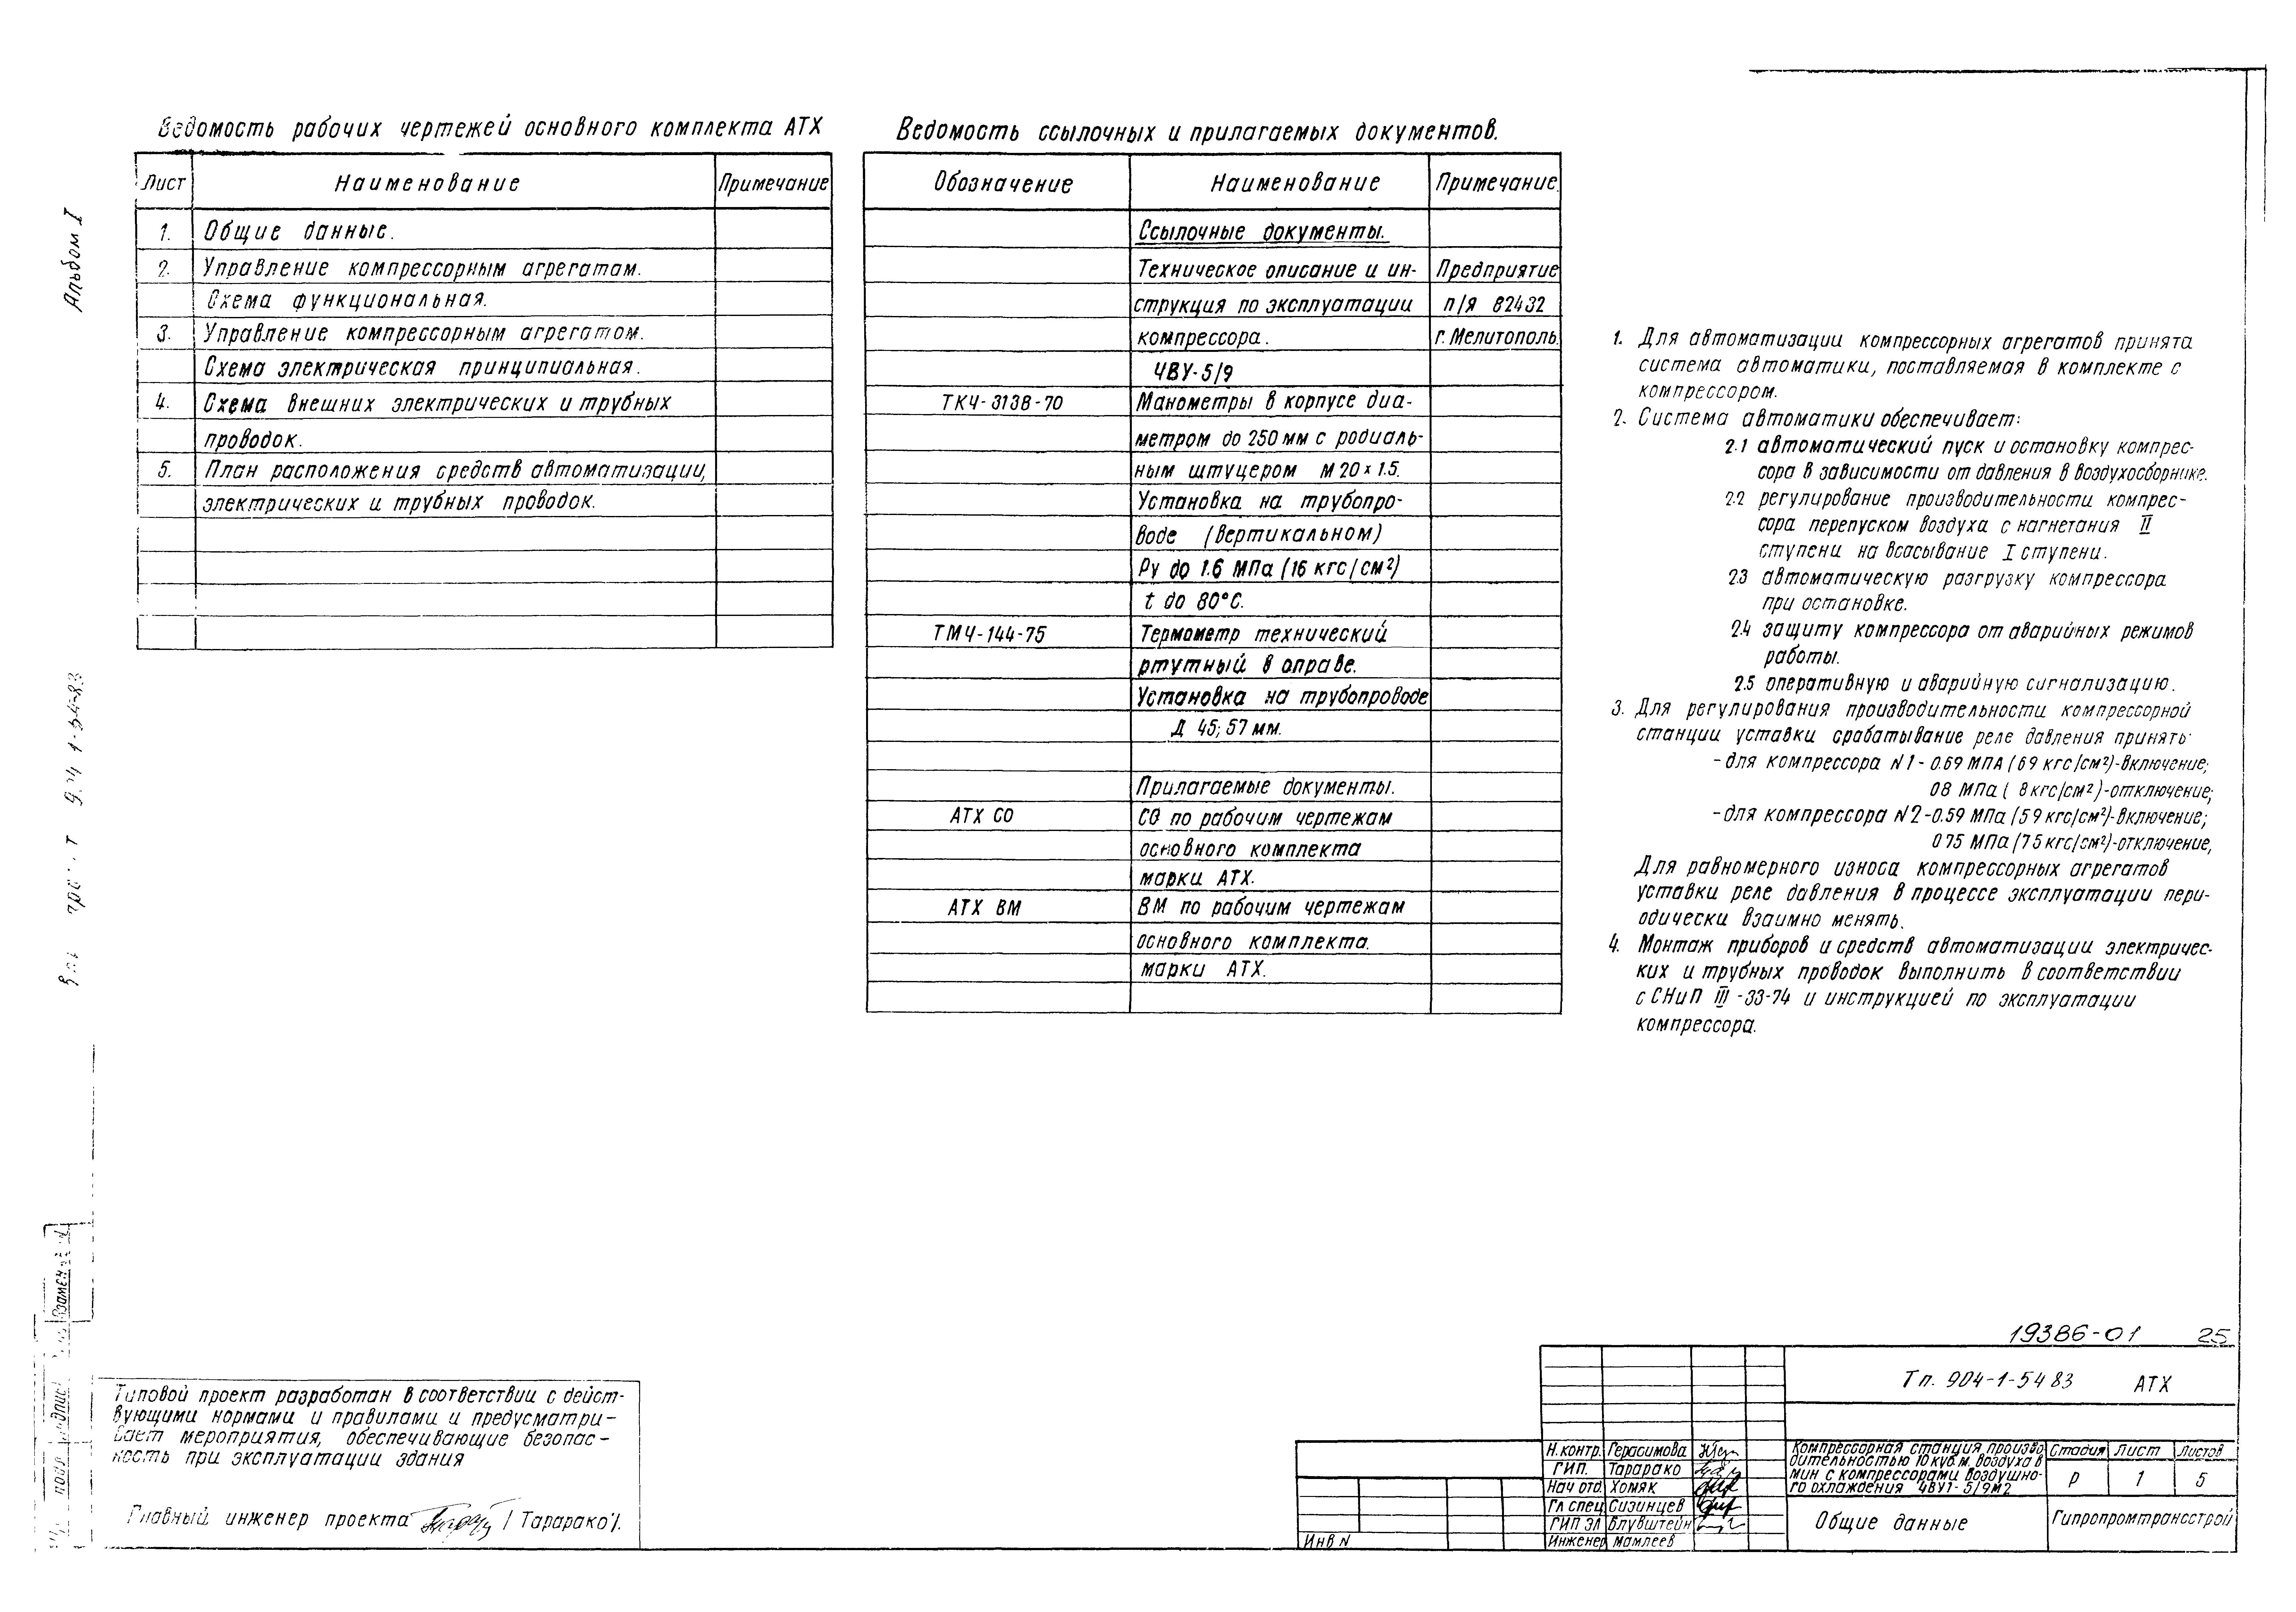 Альбом I
Ведомость рабочих чертежей основного комплекта АТХ
Лист Наименование Примечание
1. Общие данные.
2. Управление компрессорным агрегатам.
Схема функциональная.
3. Управление компрессорным агрегатом.
Схема электрическая принципиальная.
4. Схема внешних электрических и трубных
проводок.
5. План расположения средств автоматизации,
электрических и трубных проводок.
Ведомость ссылочных и прилагаемых документов.
Обозначение Наименование Примечание.
Ссылочные документы.
Техническое описание и ин- Предприятие
струкция по эксплуатации п/я 82432
компрессора. г. Мелитополь.
ЧВУ-5/9
ТКЧ-3138-70 Манометры в корпусе диа-
метром до 250 мм с родиаль-
ным штуцером М 20 х 1.5.
Установка на трубопро-
воде (вертикальном)
Ру до 1.6 МПа (16 кгс/см²)
t до 80°С.
ТМЧ-144-75 Термометр технический
ртутный в оправе.
Установка на трубопроводе
Д 45; 57 мм.
Прилагаемые документы.
АТХ СО СО по рабочим чертежам
основного комплекта
марки АТХ.
АТХ ВМ ВМ по рабочим чертежам
основного комплекта.
марки АТХ.
1. Для автоматизации компрессорных агрегатов принята
система автоматики, поставляемая в комплекте с
компрессором.
2. Система автоматики обеспечивает:
2.1 автоматический пуск и остановку компрес-
сора в зависимости от давления в воздухосборнике.
2.2 регулирование производительности компрес-
сора перепуском воздуха с нагнетания II
ступени на всасывание I ступени.
2.3 автоматическую разгрузку компрессора
при остановке.
2.4 защиту компрессора от аварийных режимов
работы.
2.5 оперативную и аварийную сигнализацию.
3. Для регулирования производительности компрессорной
станции уставки срабатывание реле давления принять:
- для компрессора N1 - 0.69 МПА (6 9 кгс/см²)-включение;
0 8 МПа ( 8 кгс/см²)-отключение;
- для компрессора N2 - 0.59 МПа (5 9 кгс/см²)-включение;
0 75 МПа (7 5 кгс/см²)-отключение,
Для равномерного износа компрессорных агрегатов
уставки реле давления в процессе эксплуатации пери-
одически взаимно менять.
4. Монтаж приборов и средств автоматизации электричес-
ких и трубных проводок выполнить в соответствии
с СНиП III -33-74 и инструкцией по эксплуатации
компрессора.
Типовой проект разработан в соответствии с дейст-
вующими нормами и правилами и предусматри-
вает мероприятия, обеспечивающие безопас-
ность при эксплуатации здания
Главный инженер проекта /Тарарако/.
19386-01 25
Тп. 904-1-54 83 АТХ
Н. контр. Герасимова
ГИП. Тарарако
Нач отд Хомяк
Гл спец Сизинцев
ГИП ЭЛ Блувштейн
Инженер Мамлеев
Инв N
Компрессорная станция произво
дительностью 10 куб.м. воздуха в
мин с компрессорами воздушно-
го охлаждения 4ВУ1-5/9М2
Стадия Лист Листов
Р 1 5
Общие данные
Гипропромтрансстрой